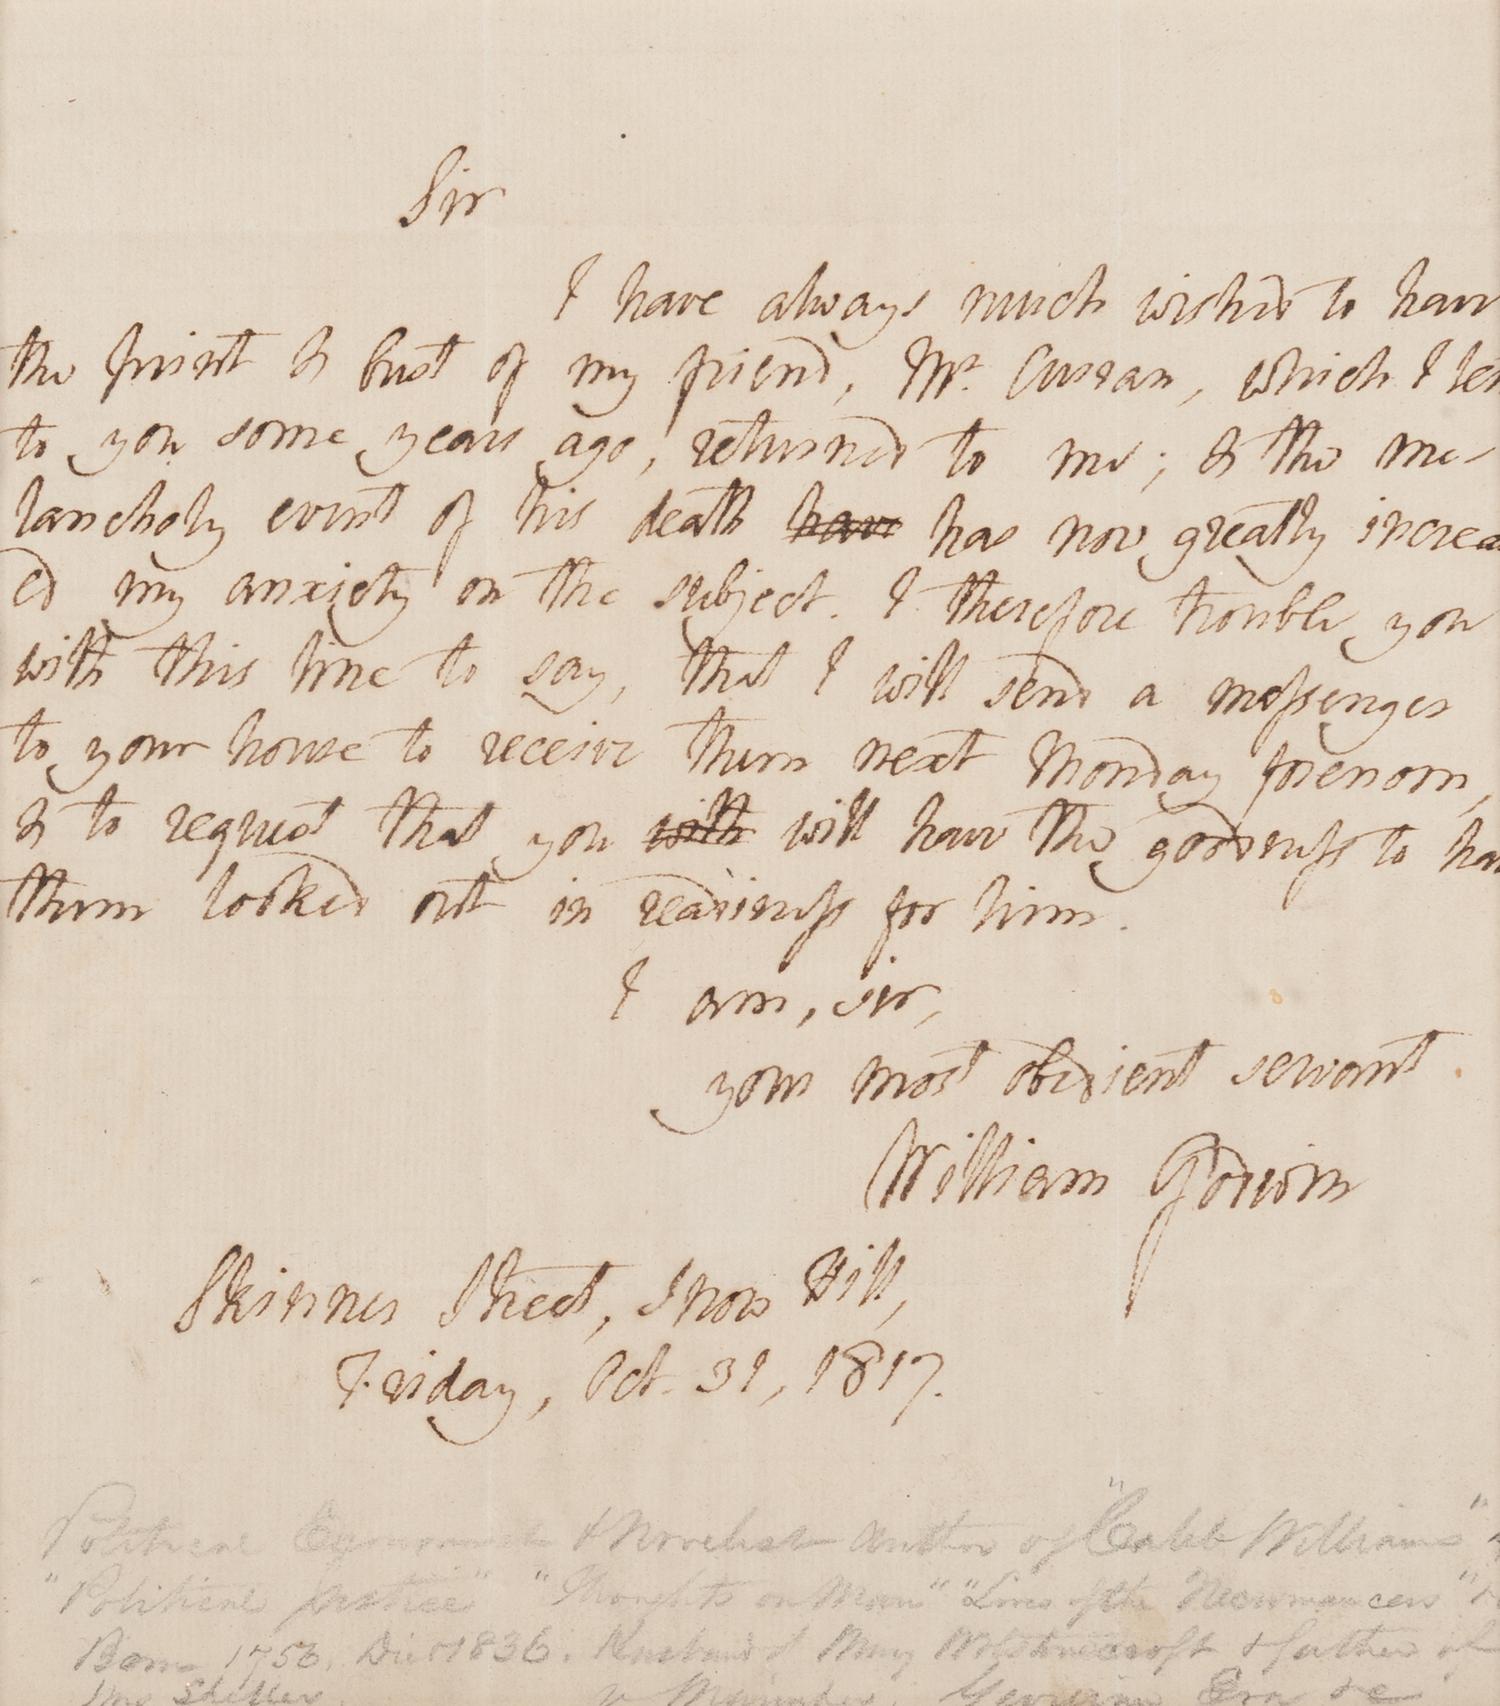 Sir
I have always much wished to have
the print & bust of my friend, Mr. Curran, which I le
to you some years ago, returned to me; & the me-
lancholy event of his death have has now greatly increa
ed my anxiety on the subject. I therefore trouble you
with this line to say, that I will send a messenger
to your house to receive them next Monday forenoon,
& to request that you with will have the goodness to ha
them looked out in readiness for him.
I am, sir,
your most obedient servant
William Godwin
Skinner Street, Snow Hill,
Friday, Oct. 31, 1817.
Political Economist & Novelist author of "Caleb Williams"
"Political Justice" "Thoughts on Man" "Lives of the Necromancers"
Born 1756. Died 1836. Husband of Mary Wolstonecroft & father of
Mrs Shelley. Georgian Era